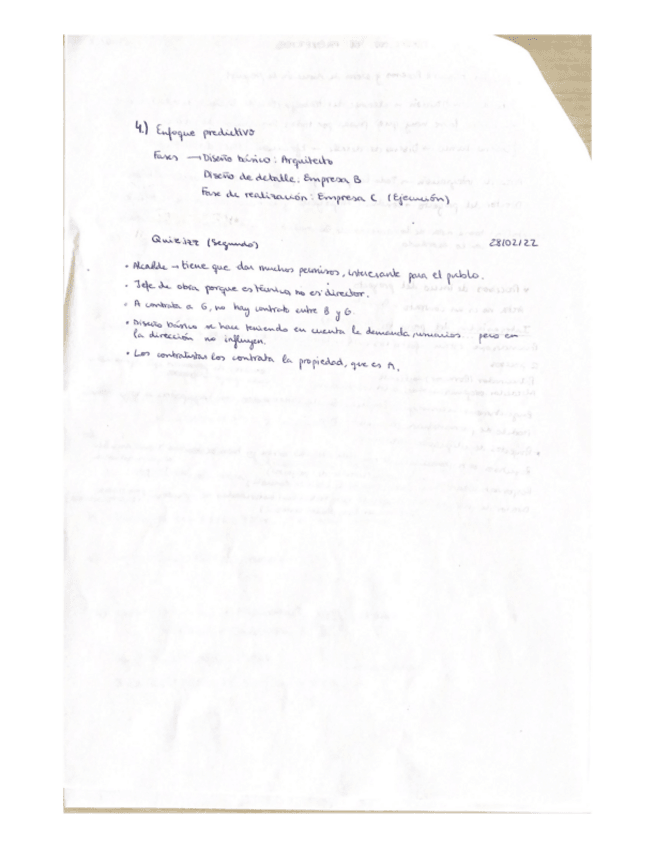 4.) Enfoque predictivo
Fases → Diseño básico: Arquitecto
Diseño de detalle: Empresa B
Fase de realización: Empresa C (Ejecución)
Quizizz (Segundo) 28/02/22
• Alcalde → tiene que dar muchos permisos, interesante para el pueblo.
• Jefe de obra porque es técnico no es director.
• A contrata a G, no hay contrato entre B y G.
• Diseño básico se hace teniendo en cuenta la demanda, usuarios... pero en
la dirección no influyen.
• Los contratistas los contrata la propiedad, que es A.